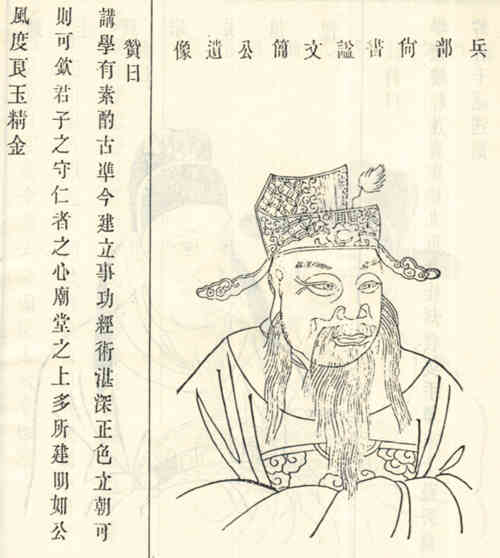 兵部尚書謚文簡公遺像
贊曰
講學有素酌古準今建立事功經術湛深正色立朝可
則可欽君子之守仁者之心廟堂之上多所建明如公
風度良玉精金